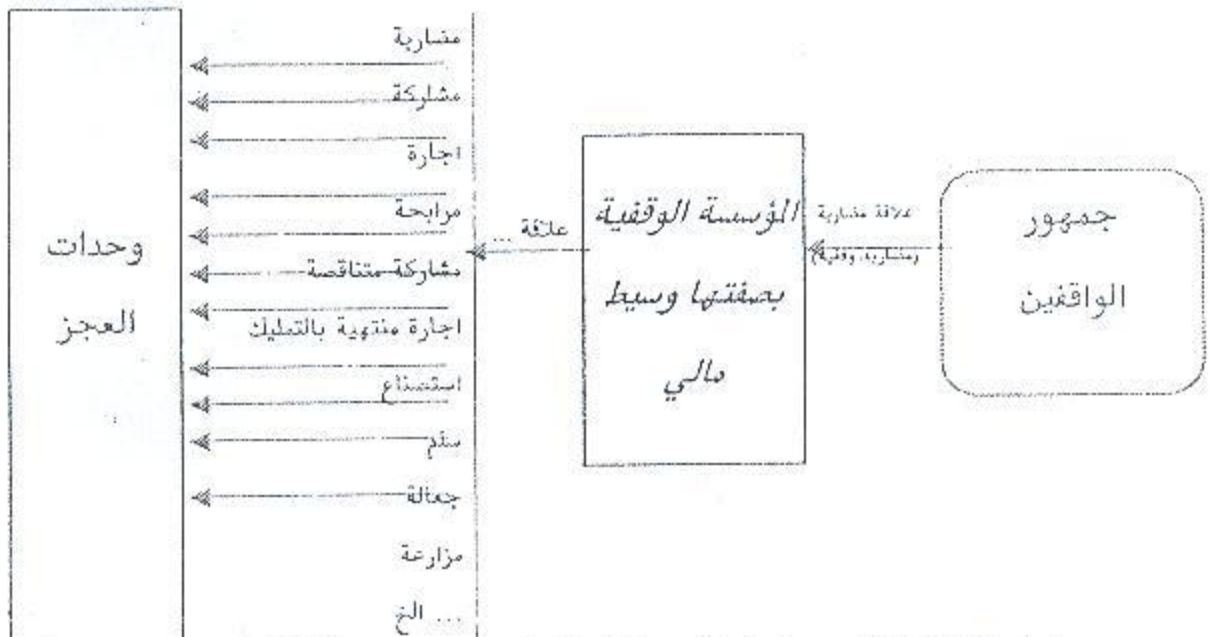 جمهور
الواقفين
علاقة مضاربة
(مضاربة وقفية)
المؤسسة الوقفية
بصفتها وسيط
مالي
علاقة ...
مضاربة
مشاركة
اجارة
مرابحة
مشاركة متناقصة
اجارة منتهية بالتمليك
استصناع
سلم
جعالة
مزارعة
... الخ
وحدات
العجز